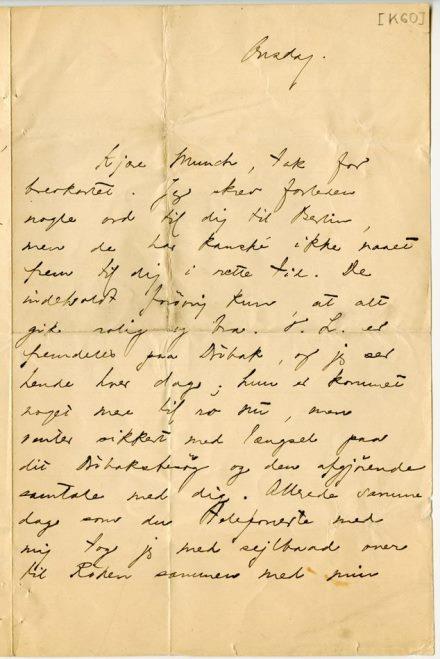 [K60]
Onsdag.
Kjære Munch, tak for
brevkortet. Jeg skrev forleden
nogle ord til dig til Berlin,
men de har kanské ikke naaet
frem til dig i rette tid. De
indeholdt forövrig kun, at alt
gik rolig og bra. T. L. er
fremdeles paa Dröbak, og jeg ser
hende hver dag; hun er kommet
noget mer til ro nu, men
venter sikkert med længsel paa
dit Dröbaksbesög og den afgjörende
samtale med dig. Allerede samme
dag som du telefonerte med
mig tog jeg med sejlbaad over
til Röken sammen med min